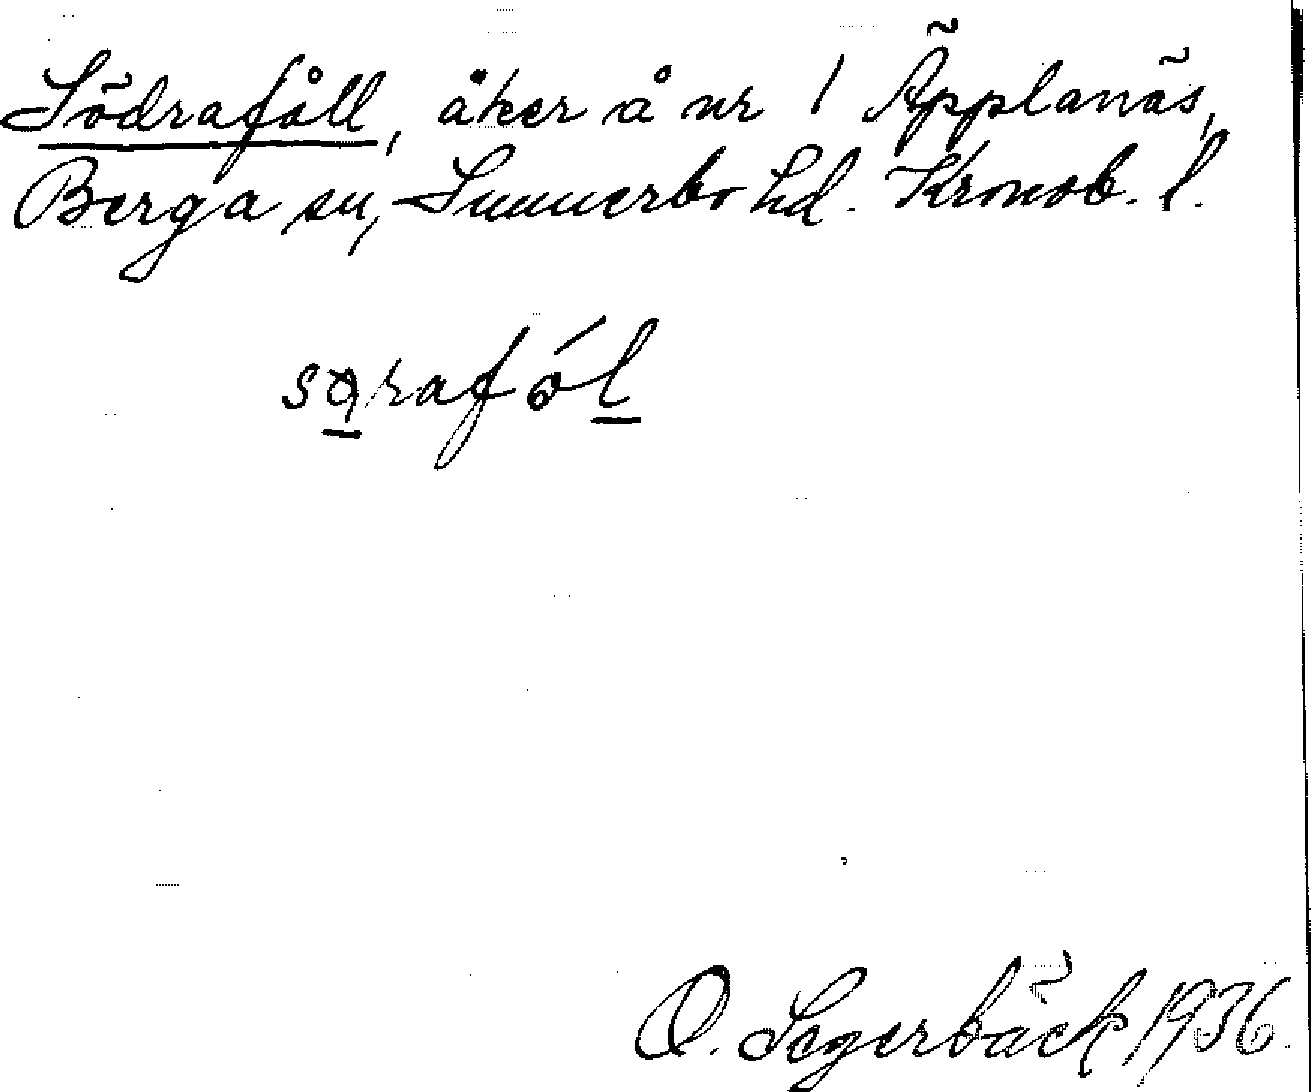 Södrafåll, åker å nr 1 Äpplanäs,
Berga sn, Sunnerbo hd. Kronob. l.
O. Segerbäck 1936.